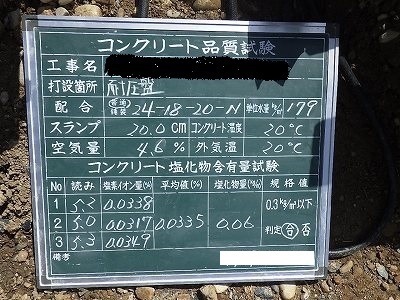 コンクリート品質試験
工事名
打設箇所 耐圧盤
配合 普通 24-18-20-N 単位水量 kg/m³ 179
スランプ 20.0cm コンクリート温度 20℃
空気量 4.6% 外気温 20℃
コンクリート塩化物含有量試験
No 読み 塩素イオン量(%) 平均値(%) 塩化物量(kg/m³) 規格値
1 5.2 0.0338 0.3kg/m³以下
2 5.0 0.0317 0.0335 0.06
3 5.3 0.0349 判定 合 否
備考